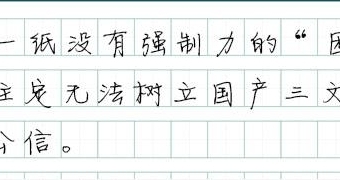 一纸没有强制力的“国
注定无法树立国产三文
公信。